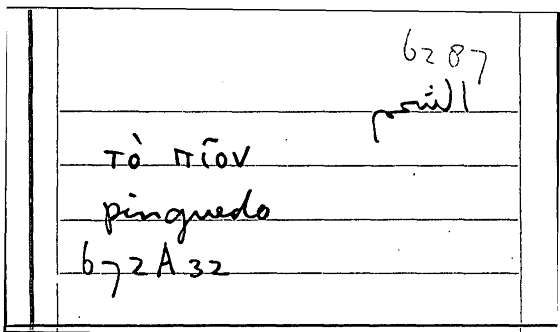 6287
الشحم
τὸ πῖον
pinguedo
672A32